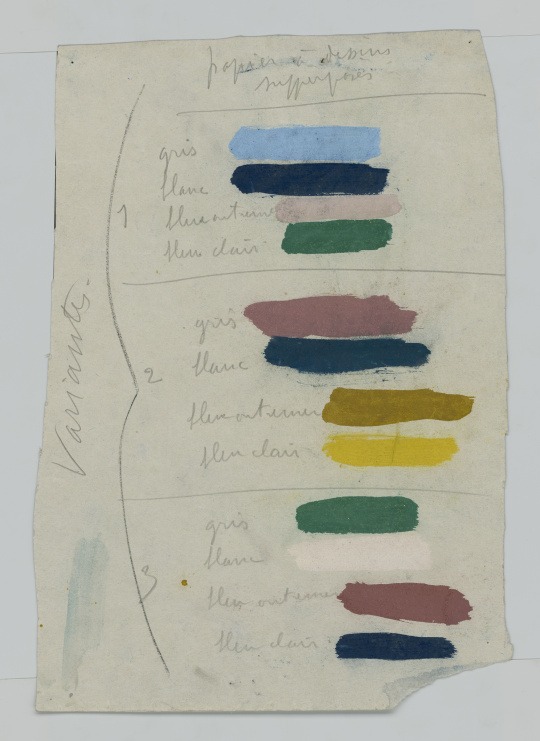 papier à dessins
supperposés
Variantes.
1
gris
blanc
bleu outremer
bleu clair
2
gris
blanc
bleu outremer
bleu clair
3
gris
blanc
bleu outremer
bleu clair